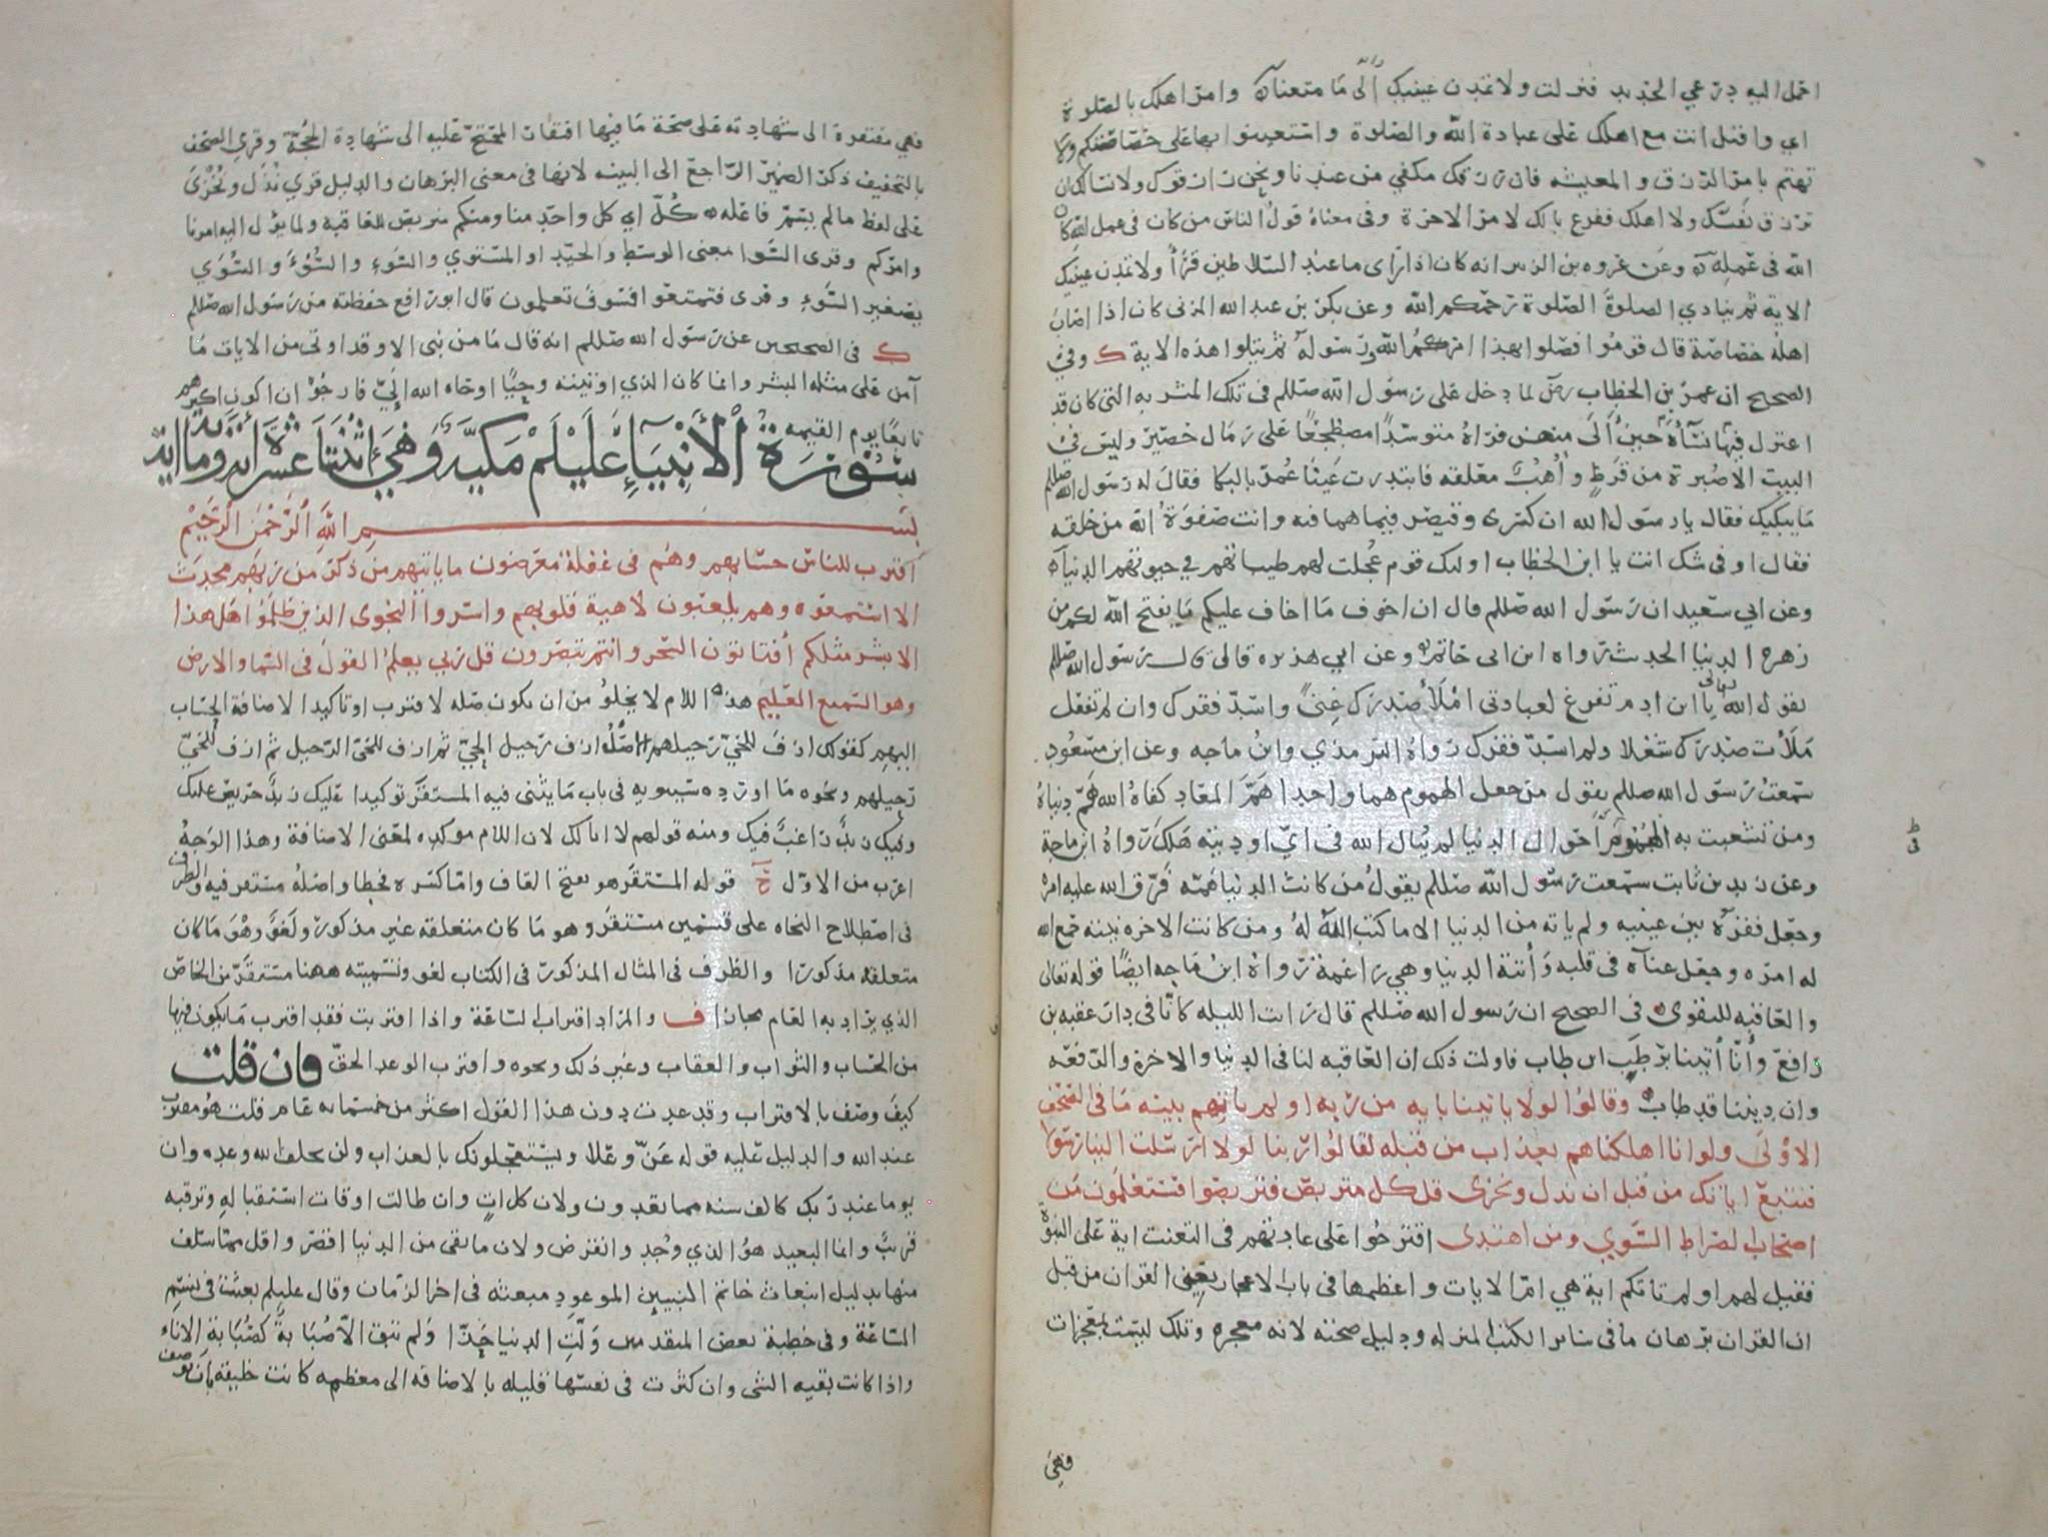 احمل اليه درعي الحديد فنزلت ولا تمدن عينيك الى ما متعنا به وامر اهلك بالصلوة
اي واقبل انت مع اهلك على عبادة الله والصلاة واستعينوا بها على خصاصتكم ولا
تهتم بامر الرزق والمعيشه فان رزقك مكفي من عندنا ونحن رازقوك ولا نسالك ان
ترزق نفسك ولا اهلك ففرغ بالك لامر الاخرة وفى معناه قول الناس من كان فى عمل الله كان
الله فى عمله وعن عروه بن الزبير انه كان اذا رأى ما عند السلاطين قرأ ولا تمدن عينيك
الاية ثم ينادي الصلوة الصلوة رحمكم الله وعن بكر بن عبد الله المزنى كان اذا اصاب
اهله خصاصة قال قوموا فصلوا بهذا امركم الله ورسوله ثم يتلوا هذه الاية ك وفي
الصحيح ان عمر بن الخطاب رضى لما دخل على رسول الله صللم فى تلك المشربه التى كان قد
اعتزل فيها نساؤه حين آلى منهن فرآه متوسدا مضطجعا على رمال حصير وليس فى
البيت الا صبرة من قرظ وأهب معلقه فابتدرت عينا عمر بالبكا فقال له رسول الله صللم
ما يبكيك فقال يا رسول الله ان كسرى وقيصر فيما هما فيه وانت صفوة الله من خلقه
فقال اوفى شك انت يا ابن الخطاب اولئك قوم عجلت لهم طيباتهم في حيوتهم الدنيا
وعن ابي سعيد ان رسول الله صللم قال ان اخوف ما اخاف عليكم ما يفتح الله لكم من
زهرة الدنيا الحديث رواه ابن ابى حاتم وعن ابي هريره قال قال رسول الله صللم
يقول الله تعالى يا ابن ادم تفرغ لعبادتى املأ صدرك غنى واسد فقرك وان لم تفعل
ملأت صدرك شغلا ولم اسد فقرك رواه الترمذي وابن ماجه وعن ابن مسعود
سمعت رسول الله صللم يقول من جعل الهموم هما واحدا هم المعاد كفاه الله هم دنياه
ومن تشعبت به الهموم احوال الدنيا لم يبال الله فى اي اوديته هلك رواه ابن ماجة
وعن زيد بن ثابت سمعت رسول الله صللم يقول من كانت الدنيا همه فرق الله عليه امره
وجعل فقره بين عينيه ولم ياته من الدنيا الا ما كتب الله له ومن كانت الاخره نيته جمع الله
له امره وجعل غناه فى قلبه وأتته الدنيا وهي راغمة رواه ابن ماجه ايضا قوله تعالى
والعاقبه للتقوى فى الصحيح ان رسول الله صللم قال رايت الليله كانا فى دار عقبه بن
رافع وأنا أتينا برطب ابن طاب فاولت ذلك ان العاقبه لنا فى الدنيا والاخرة والرفعه
وان ديننا قد طاب وقالوا لولا ياتينا بايه من ربه اولم ياتهم بينه ما فى الصحف
الاولى ولو انا اهلكناهم بعذاب من قبله لقالوا ربنا لولا ارسلت الينا رسولا
فنتبع اياتك من قبل ان نذل ونخزى قل كل متربص فتربصوا فستعلمون من
اصحاب الصراط السوي ومن اهتدى اقترحوا على عادتهم فى التعنت اية على النبوة
فقيل لهم اولم تاتكم اية هي ام الايات واعظمها فى باب الاعجاز يعني القران من قبل
ان القران برهان ما فى سائر الكتب المنزله ودليل صحته لانه معجره وتلك ليست بمعجزات
فهي
فهي مفتقرة الى شهادته على صحة ما فيها افتقار المحتج عليه الى شهادة الحجة وقرى الصحف
بالتخفيف ذكر الضمير الراجع الى البينه لانها فى معنى البرهان والدليل قرى نذل ونخزى
على لفظ ما لم يسم فاعله كل اي كل واحد منا ومنكم متربص للعاقبه ولما يؤل اليه امرنا
وامركم وقرى السوا بمعنى الوسط والجيد او المستوي والسوء والسوءى والسوي
تصغير السوء وقرى فتمتعوا فسوف تعلمون قال ابو رافع حفظته من رسول الله صللم
ك فى الصحيحين عن رسول الله صللم انه قال ما من نبى الا وقد اوتى من الايات ما
آمن على مثله البشر وانما كان الذي اوتيته وحيا اوحاه الله الي فارجو ان اكون اكثرهم
تابعا يوم القيمه
سورة الأنبياء عليلم مكية وهي اثنتا عشرة اية وماية
بسم الله الرحمن الرحيم
اقترب للناس حسابهم وهم فى غفلة معرضون ما ياتيهم من ذكر من ربهم محدث
الا استمعوه وهم يلعبون لاهية قلوبهم واسروا النجوى الذين ظلموا هل هذا
الا بشر مثلكم أفتاتون السحر وانتم تبصرون قل ربي يعلم القول فى السما والارض
وهو السميع العليم هذه اللام لا يخلو من ان يكون صله لاقترب او تاكيدا لاضافة الحساب
اليهم كقولك ازف للحي رحيلهم اصله ازف رحيل الحي ثم ازف للحى الرحيل ثم ازف للحي
رحيلهم ونحوه ما اورده سيبويه فى باب ما يثنى فيه المستقر توكيدا عليك زيد حريص عليك
وفيك زيد راغب فيك ومنه قولهم لا ابا لك لان اللام موكده لمعنى الاضافة وهذا الوجه
اغرب من الاول ح قوله المستقر هو بفتح القاف واما كسره فخطا واصله مستقر فيه والظرف
فى اصطلاح النحاه على قسمين مستقر وهو ما كان متعلقه غير مذكور ولغو وهو ما كان
متعلقه مذكورا والظرف فى المثال المذكور فى الكتاب لغو وتسميته ههنا مستقر من الخاص
الذي يراد به العام مجازا ف والمراد اقتراب الساعة واذا اقتربت فقد اقترب ما يكون فيها
من الحساب والثواب والعقاب وغير ذلك ونحوه واقترب الوعد الحق فان قلت
كيف وصف بالاقتراب وقد عدت دون هذا القول اكثر من خمسمايه عام قلت هو مقترب
عند الله والدليل عليه قوله عز وعلا ويستعجلونك بالعذاب ولن يخلف الله وعده وان
يوما عند ربك كالف سنه مما يعدون ولان كل ات وان طالت اوقات استقباله وترقبه
قريب وانما البعيد هو الذي وجد وانقرض ولان ما بقى من الدنيا اقصر واقل مما سلف
منها بدليل انبعاث خاتم النبيين الموعود مبعثه فى اخر الزمان وقال عليلم بعثت فى نسم
الساعة وفى خطبة بعض المتقدمين ولت الدنيا حذا ولم تبق الا صبابة كصبابة الاناء
واذا كانت بقيه الشى وان كثرت فى نفسها قليله بالاضافه الى معظمه كانت خليقة بان توصف